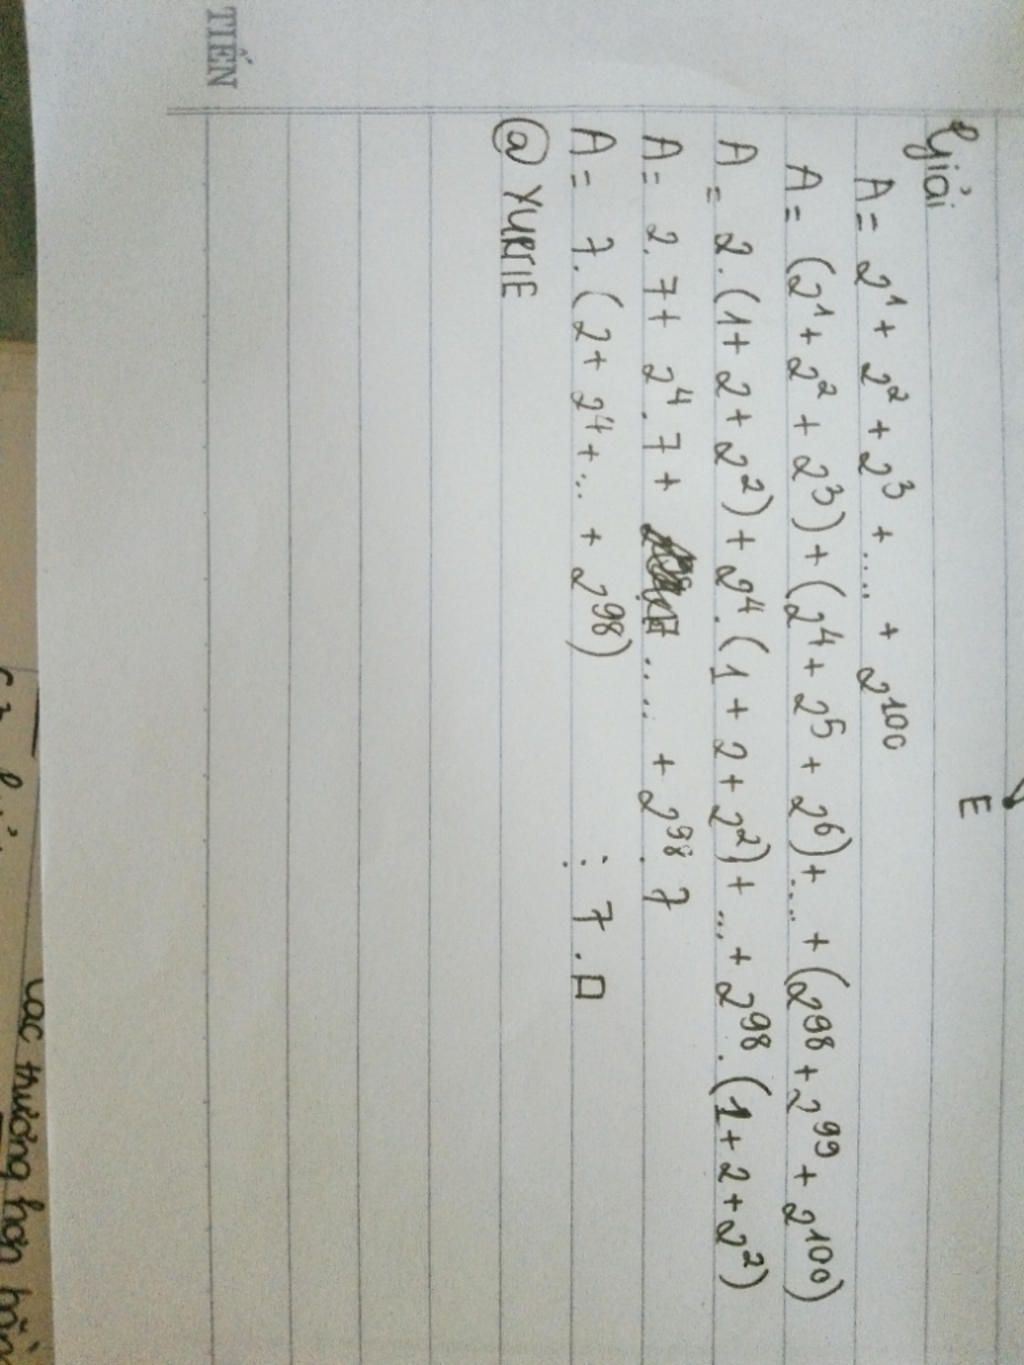 TIẾN
E
Giải
A = 2¹ + 2² + 2³ + .... + 2¹⁰⁰
A = (2¹ + 2² + 2³) + (2⁴ + 2⁵ + 2⁶) + .... + (2⁹⁸ + 2⁹⁹ + 2¹⁰⁰)
A = 2.(1 + 2 + 2²) + 2⁴.(1 + 2 + 2²) + ... + 2⁹⁸.(1 + 2 + 2²)
A = 2.7 + 2⁴.7 + .... + 2⁹⁸.7
A = 7.(2 + 2⁴ + ... + 2⁹⁸) ⋮ 7.
@ YURIE
các thường hơn